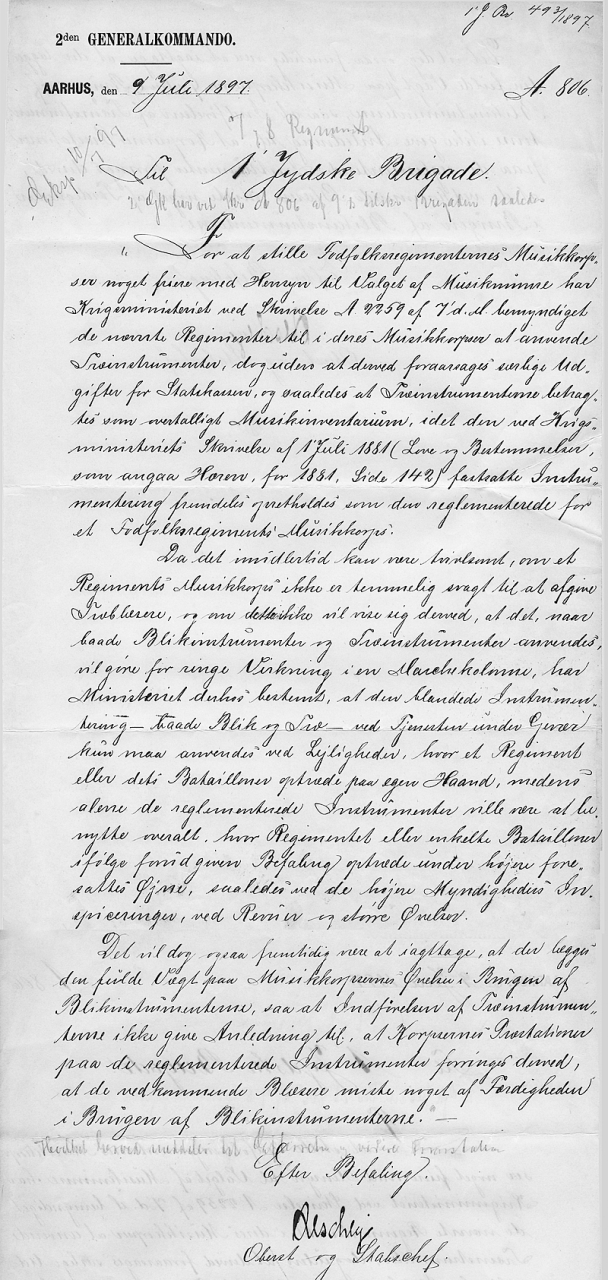 1' J. Br 493/1897
2den GENERALKOMMANDO.
AARHUS, den 9' Juli 1897.
A. 806.
7, 8 Regiment
10/7 97
Til 1' Jydske Brigade.
af 9' ds tilskr Brigaden saaledes
" For at stille Fodfolksregimenternes Musikkorp-
ser noget friere med Hensyn til Valget af Musiknumre har
Krigsministeriet ved Skrivelse A 2259 af 7' d. M. bemyndiget
de nævnte Regimenter til i deres Musikkorpser at anvende
Træinstrumenter, dog uden at derved foraarsages særlige Ud-
gifter for Statskassen, og saaledes at Træinstrumenterne betrag-
tes som overtalligt Musikinventarium, idet den ved Krigs-
ministeriets Skrivelse af 1' Juli 1881 (Love og Bestemmelser,
som angaa Hæren, for 1881, Side 142) fastsatte Instru-
mentering fremdeles opretholdes som den reglementerede for
et Fodfolksregiments Musikkorps.
Da det imidlertid kan være tvivlsomt, om et
Regiments Musikkorps ikke er temmelig svagt til at afgive
Træblæsere, og om dette ikke vil vise sig derved, at det, naar
baade Blikinstrumenter og Træinstrumenter anvendes,
vil gøre for ringe Virkning i en Marchekolonne, har
Ministeriet derhos bestemt, at den blandede Instrumen-
tering – baade Blik og Træ – ved Tjenesten under Gevær
kun maa anvendes ved Lejligheder, hvor et Regiment
eller dets Batailloner optræde paa egen Haand, medens
alene de reglementerede Instrumenter ville være at be-
nytte overalt, hvor Regimentet eller enkelte Batailloner
ifølge forud given Befaling optræde under højere fore-
sattes Øjne, saaledes ved de højere Myndigheders In-
spiceringer, ved Revuer og større Øvelser.
Det vil dog ogsaa fremtidig være at iagttage, at der lægges
den fulde Vægt paa Musikkorpsernes Øvelse i Brugen af
Blikinstrumenterne, saa at Indførelsen af Træinstrumen-
terne ikke give Anledning til, at Korpsernes Præstationer
paa de reglementerede Instrumenter forringes derved,
at de vedkommende Blæsere miste noget af Færdigheden
i Brugen af Blikinstrumenterne. –
Hvilket herved meddeles til Efterretning
Efter Befaling.
Oberst og Stabschef.